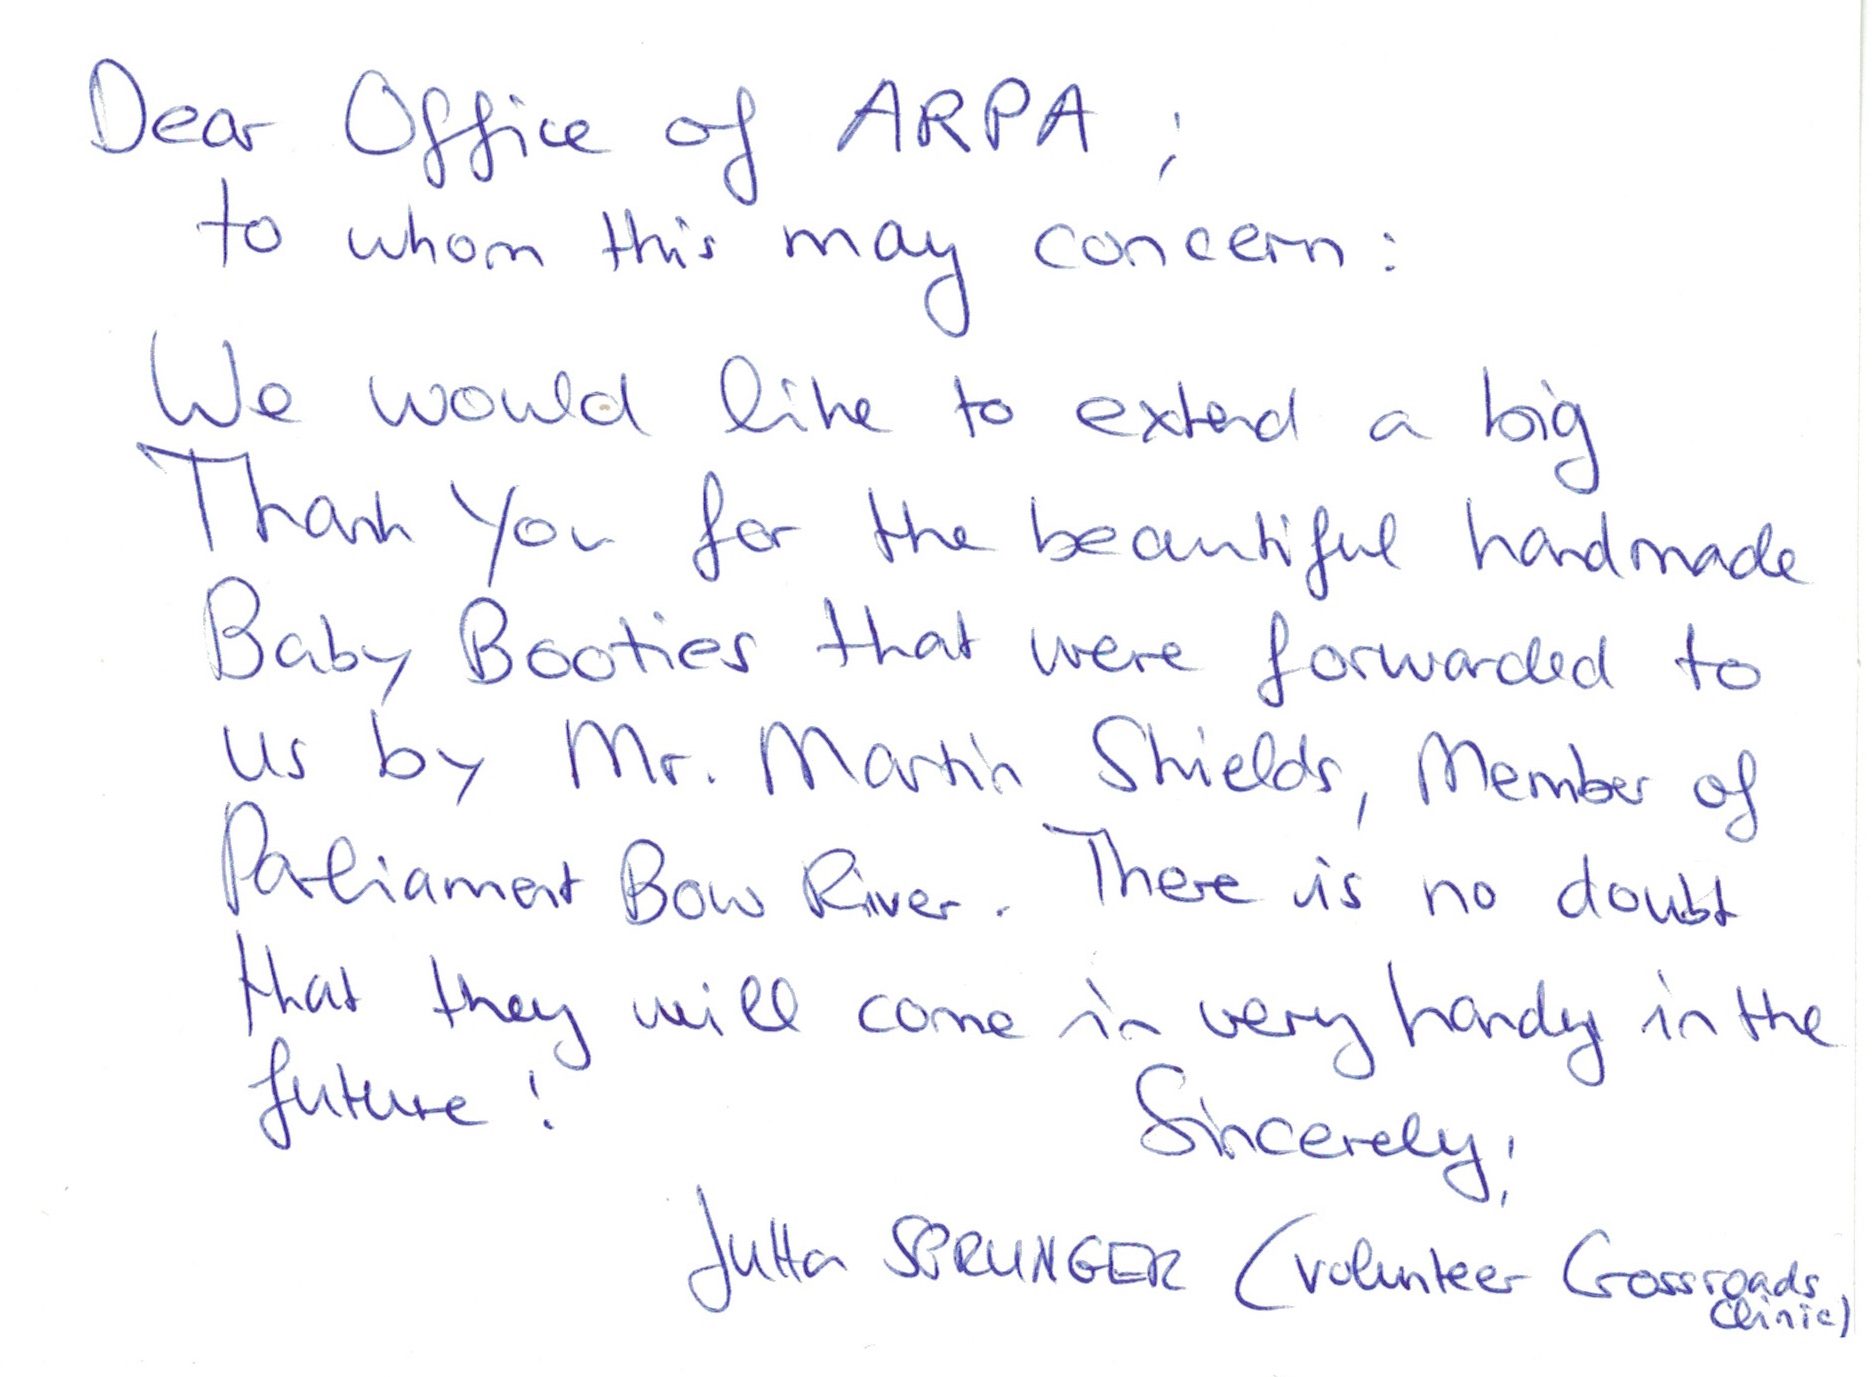 Dear Office of ARPA ;
to whom this may concern :
We would like to extend a big
Thank You for the beautiful handmade
Baby Booties that were forwarded to
us by Mr. Martin Shields, Member of
Parliament Bow River. There is no doubt
that they will come in very handy in the
future !
Sincerely ;
Jutta SPRUNGER (volunteer Crossroads
Clinic)